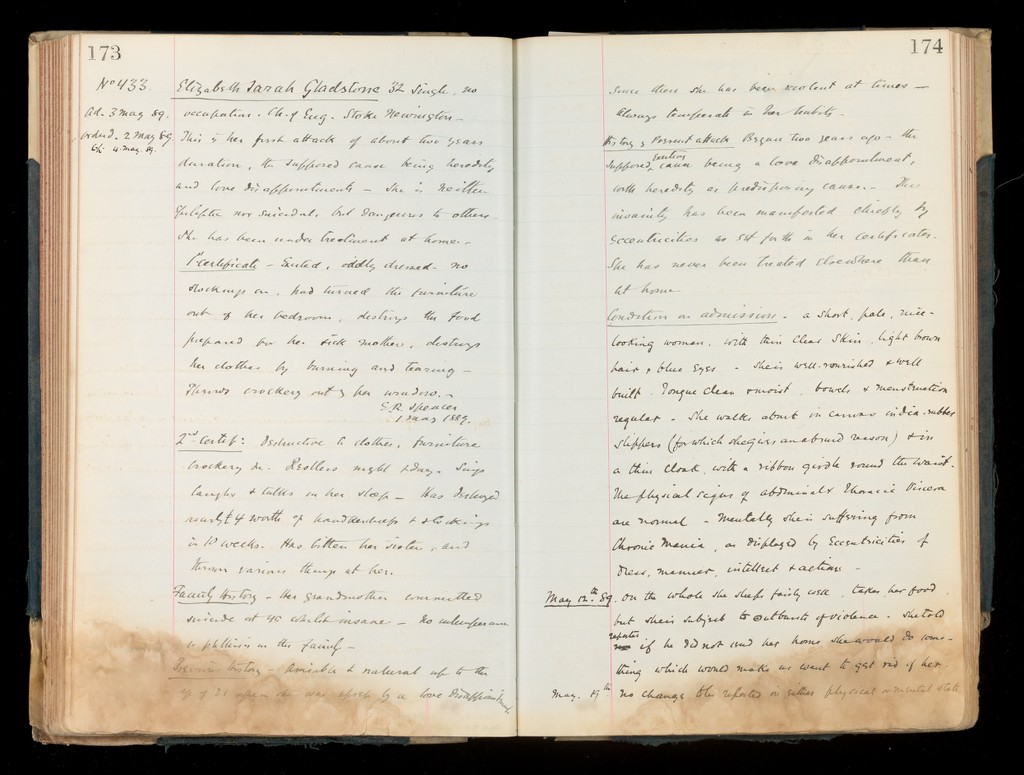 173
No 433.
Elizabeth Sarah Gladstone 32 Single, no
ad. 3 May 89.
occupation. Ch. of Eng. Stoke Newington -
orderd. 2 May 89.
4. May. 89.
This is her first attack of about two years
duration, the supposed cause being heredity
and love disappointments - She is neither
Epileptic nor suicidal, but dangerous to others
She has been under treatment at home. -
1st certificate - Excited, oddly dressed - no
stockings on, had turned the furniture
out of her bedroom, destroys the food
prepared for her sick mother, destroys
her clothes by burning and tearing -
Throws crockery out of her window. -
E.R. Spencer
1 May 1889.
2nd Certif: Destructive to clothes, furniture
crockery &c. Restless night & day. Sings
laughs & talks in her sleep - Has destroyed
nearly £4 worth of handkerchiefs & stockings
in 10 weeks. Has bitten her sister, and
thrown various things at her.
Family History - Her grandmother committed
suicide at 40 whilst insane - No intemperance
or phthisis in the family -
history - Amiable & natural up to the
age of 21 when she was upset by a love disappointment
174
Since then she has been violent at times -
Always temperate in her habits.
History of Present attack Began two years ago - the
supposed exciting cause being a love disappointment,
with heredity as predisposing cause - The
insanity has been manifested chiefly by
eccentricities as set forth in her certificates.
She has never been treated elsewhere than
at home
Condition on admission. - a short, pale, nice-
looking woman, with thin clear skin, light brown
hair & blue eyes - She is well-nourished & well
built. Tongue clean & moist, bowels & menstruation
regular - She walks about in canvas india-rubber
slippers (for which she gives an absurd reason) & in
a thin cloak, with a ribbon girdle round the waist.
The physical signs of abdominal & Thoracic Viscera
are normal - Mentally she is suffering from
Chronic Mania, as displayed by Eccentricities of
Dress, manner, intellect & actions -
May 12th 89. On the whole she sleeps fairly well, takes her food
but she is subject to outbursts of violence. She told
if he did not send her home she would do some-
thing which would make us want to get rid of her
May. 19th No change to be reported in either physical or mental state